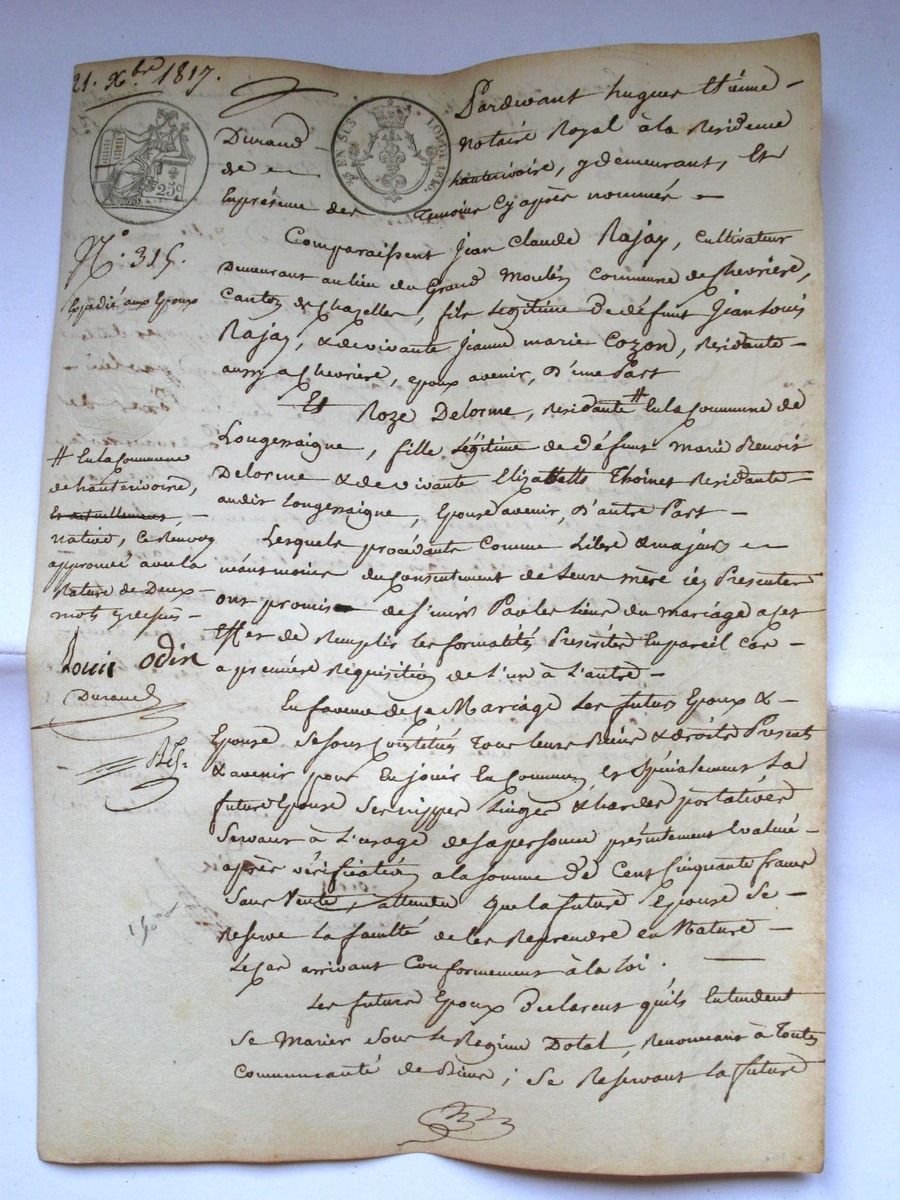 21. Xbre 1817.
25c
EN SUS
LOI DE 1816
Pardevant hugues Etienne
Durand notaire Royal à la Residence
de hauterivoire, y demeurant, Et
En présence des temoins cy après nommés
Comparaissent Jean Claude Rajay, Cultivateur
Demeurant au lieu du Grand Moulin Commune de Chevriere,
Canton de Chazelles, fils Légitime de défunt Jean Louis
Rajay, & de vivante Jeanne marie Cozon, Residante
aussy a Chevriere, epoux avenir, D'une Part
Et Roze Delorme, residante # En la Commune de
Longessaigne, fille Légitime de défunt marie Benoit
Delorme & de vivante Elizabette Thoinet Residante
audit Longessaigne, Epouse avenir, D'autre Part
Lesquels procédants Comme Libre & majeurs
néansmoins du Consentement de Leurs mère icy Presentes
ont promis de S'unir Par les Liens du mariage a cet
Effet de Remplir les formalités Prescrites En pareil cas
a première Réquisition de L'un à L'autre
En faveur de Ce Mariage Les futurs Epoux &
Epouse Se sont Constitués Tous leurs Biens & droits Present
& avenir pour En jouir En Commun et Spécialement La
future Epouse Ses nippes Linges & hardes portatives
Servant à L'usage de sa personne présentement Evalués
après vérification a la somme de Cent Cinquante francs
Sans Vente, attendu que la future Epouse Se
Reserve La faculté de les Reprendre en Nature
Le Cas arrivant Conformement à la Loi.
Les futurs Epoux Declarent qu'ils Entendent
Se Marier Sous Le Régime Dotal, Renoncant à Toutes
Communauté de Biens; Se Reservant La future
No. 315.
Expédié aux Epoux
# En la Commune
de hauterivoire,
Et actuellement,
native, Ce Renvoy
approuvé avec la
Rature de Deux
mots cy dessus
Louis Odin
Durand